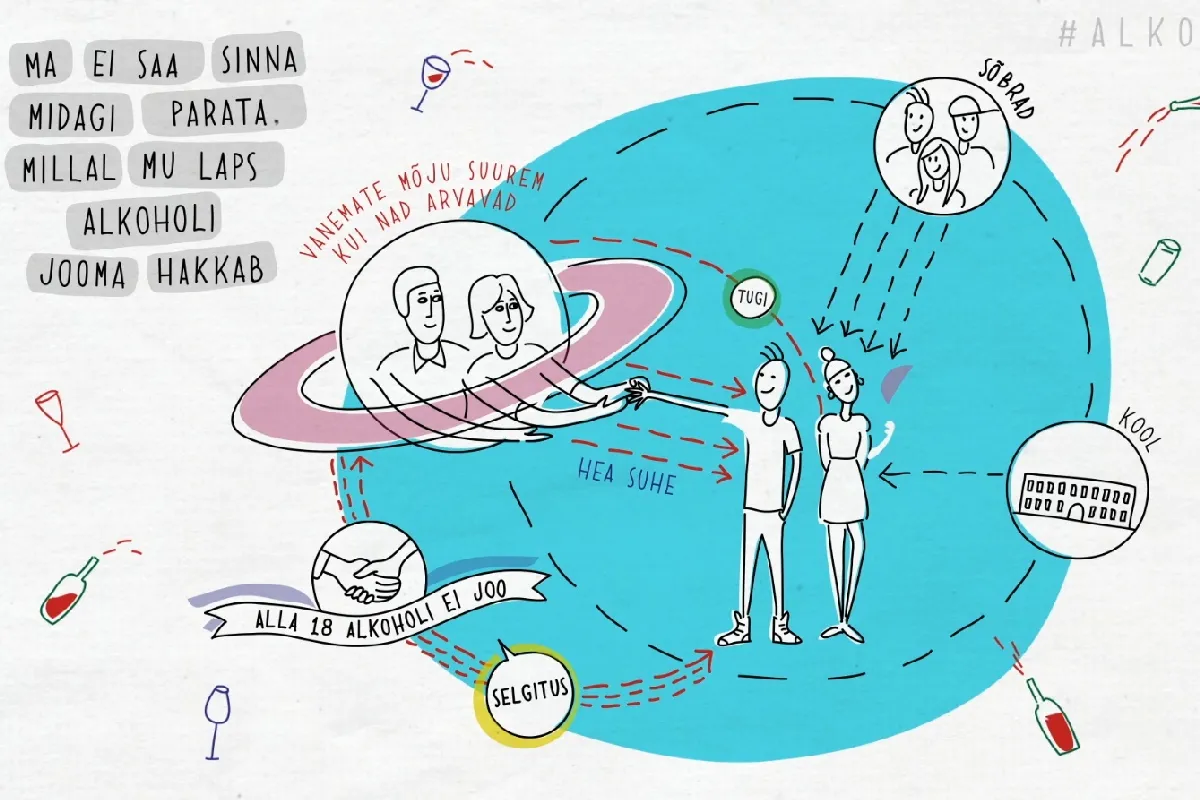 MA EI SAA SINNA
MIDAGI PARATA,
MILLAL MU LAPS
ALKOHOLI
JOOMA HAKKAB
#ALKO
SÕBRAD
VANEMATE MÕJU SUUREM
KUI NAD ARVAVAD
TUGI
KOOL
HEA SUHE
ALLA 18 ALKOHOLI EI JOO
SELGITUS